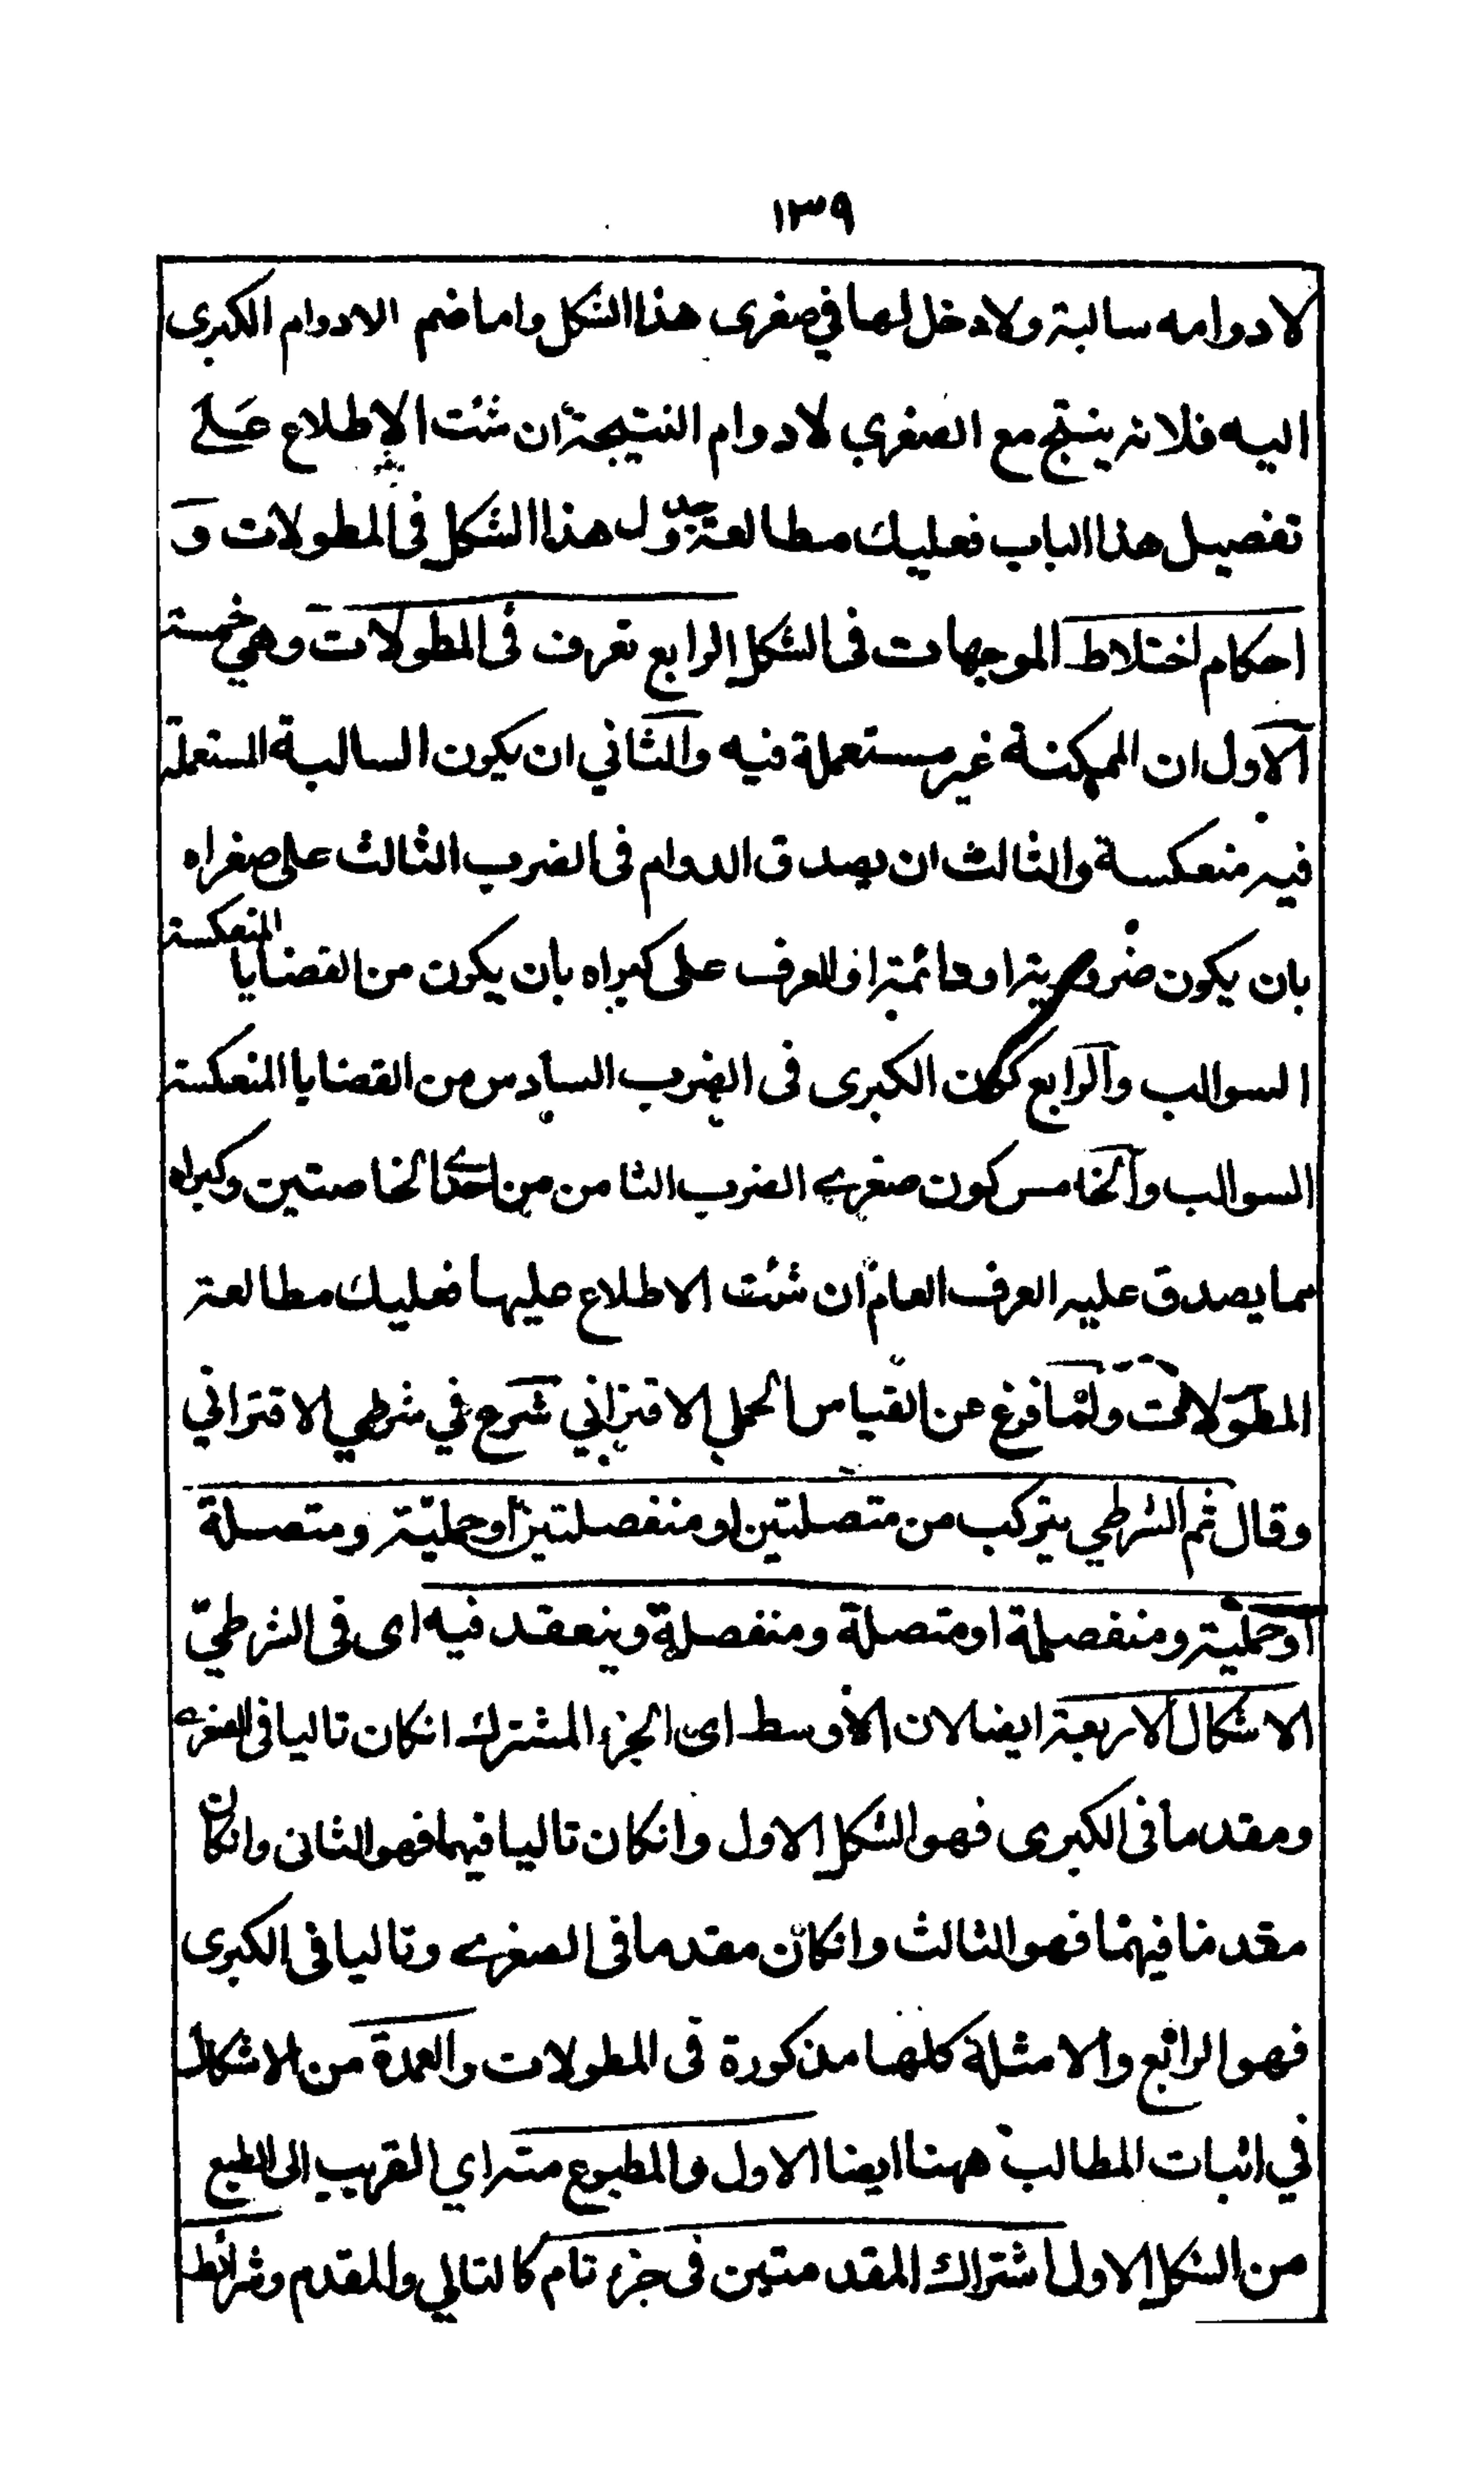 ١٣٩
لادوامه سالبة ولادخل لها في صغرى هذا الشكل واما ضم الادوام الكبرى
اليه فلانه ينتج مع الصغرى لادوام النتيجة ان شئت الاطلاع على
تفصيل هذا الباب فعليك مطالعة جدول هذا الشكل فى المطولات و
احكام اختلاط الموجهات فى الشكل الرابع تعرف فى المطولات وهي خمسة
الاول ان الممكنة غير مستعملة فيه والثاني ان يكون السالبة المستعملة
فيه منعكسة والثالث ان يصدق الدوام فى الضرب الثالث على صغراه
بان يكون ضرورية او دائمة او العرف على كبراه بان يكون من القضايا المنعكسة
السوالب والرابع كون الكبرى فى الضرب السادس من القضايا المنعكسة
السوالب والخامس كون صغرى الضرب الثامن من احدى الخاصتين وكبراه
مما يصدق عليه العرف العام ان شئت الاطلاع عليها فعليك مطالعة
المطولات ولما فرغ عن القياس الحملي الاقتراني شرع في شرطي الاقتراني
وقال ثم الشرطي يتركب من متصلتين او منفصلتين او حملية ومتصلة
او حملية ومنفصلة او متصلة ومنفصلة وينعقد فيه اى فى الشرطيّ
الاشكال الاربعة ايضا لان الأوسط اى الجزء المشترك انكان تاليا فى الصغرى
ومقدما فى الكبرى فهو الشكل الاول وانكان تاليا فيهما فهو الثانى وانكان
مقدما فيهما فهو الثالث وانكان مقدما فى الصغرى وتاليا فى الكبرى
فهو الرابع والامثلة كلها مذكورة فى المطولات والعمدة من الاشكال
في اثبات المطالب ههنا ايضا الاول والمطبوع منه اي القريب الى الطبع
من الشكل الاول اشتراك المقدمتين فى جزء تام كالتالي والمقدم وشرائط